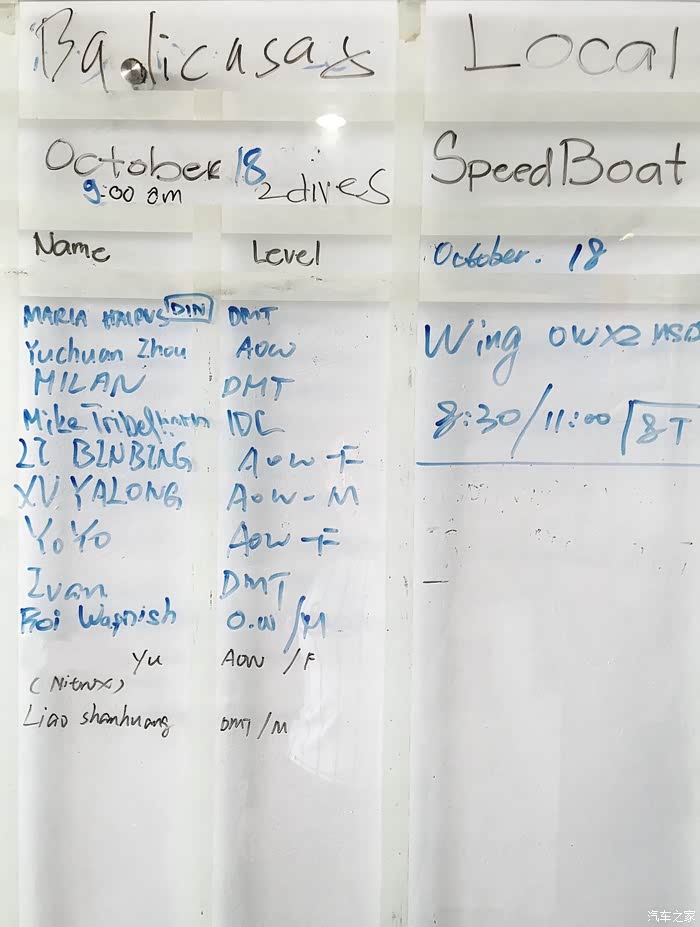 Balicasag
October 18
9:00 am 2 dives
Name Level
MARIA DIN DMT
Yuchuan Zhou AOW
MILAN DMT
Mike IDC
LI BINBING AOW-F
XV YALONG AOW-M
YoYo AOW-F
Ivan DMT
Roi O.W/M
Yu AOW/F
(Nitrox)
Liao shanhuang DMT/M
Local
SpeedBoat
October. 18
Wing OWX2
8:30/11:00 8T
汽车之家